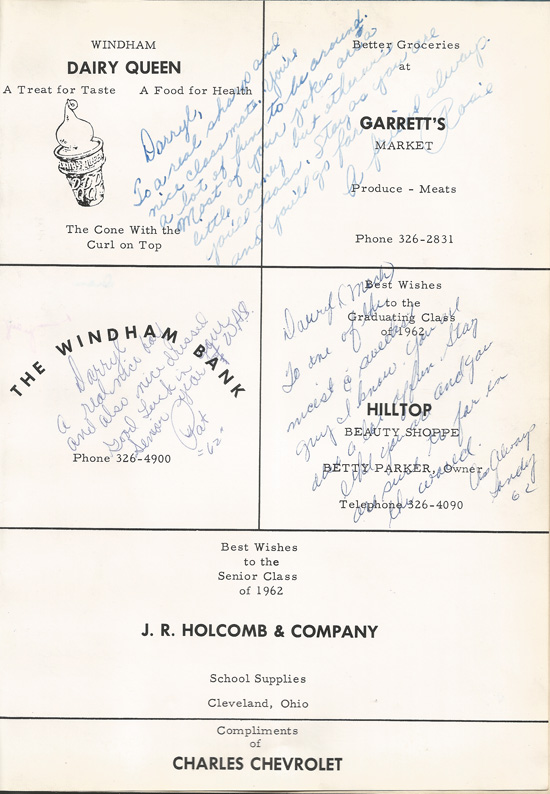 WINDHAM
DAIRY QUEEN
A Treat for Taste A Food for Health
The Cone With the
Curl on Top
Better Groceries
at
GARRETT'S
MARKET
Produce - Meats
Phone 326-2831
Darryl,
To a real sharp and
nice classmate. You're
a lot of fun to be around.
Most of your jokes are a
little corney but otherwise
you'll pass. Stay as you are
and you'll go far
A friend always.
Rosie
THE WINDHAM BANK
Phone 326-4900
Darryl
A real nice boy
and also nice dressed
good luck in your
Senior year at W.H.S.
Pat
"62"
Best Wishes
to the
Graduating Class
of 1962
HILLTOP
BEAUTY SHOPPE
BETTY PARKER, Owner
Telephone 326-4090
Darryl
To one of the
nicest & sweetest
guy I know. You are
and
Stay
and you
are sure to go far in
the world.
As Always
Sandy
62
Best Wishes
to the
Senior Class
of 1962
J. R. HOLCOMB & COMPANY
School Supplies
Cleveland, Ohio
Compliments
of
CHARLES CHEVROLET